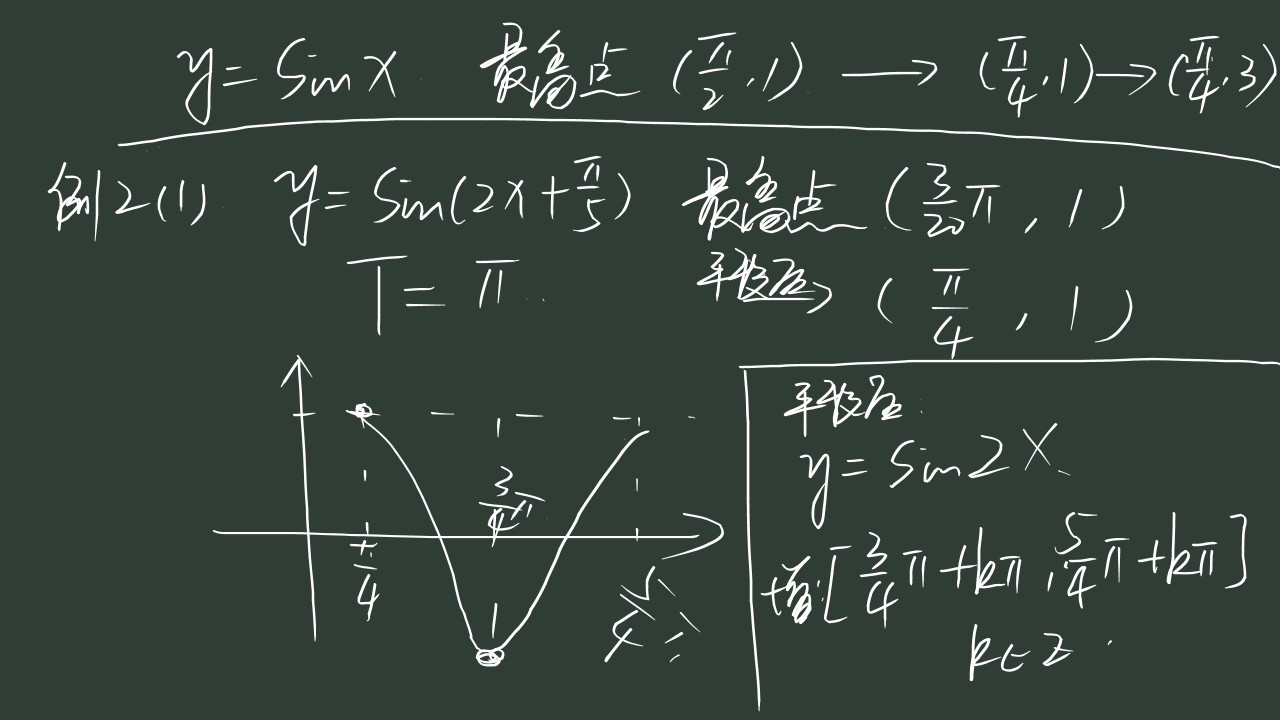 y = sin x 最高点 (π/2, 1) → (π/4, 1) → (π/4, 3)
例2(1) y = sin(2x + π/5) 最高点 (3/20 π, 1)
T = π 平移后 (π/4, 1)
平移后
y = sin2x
3/4 π
增:[3/4 π + kπ, 5/4 π + kπ]
π/4
k∈Z